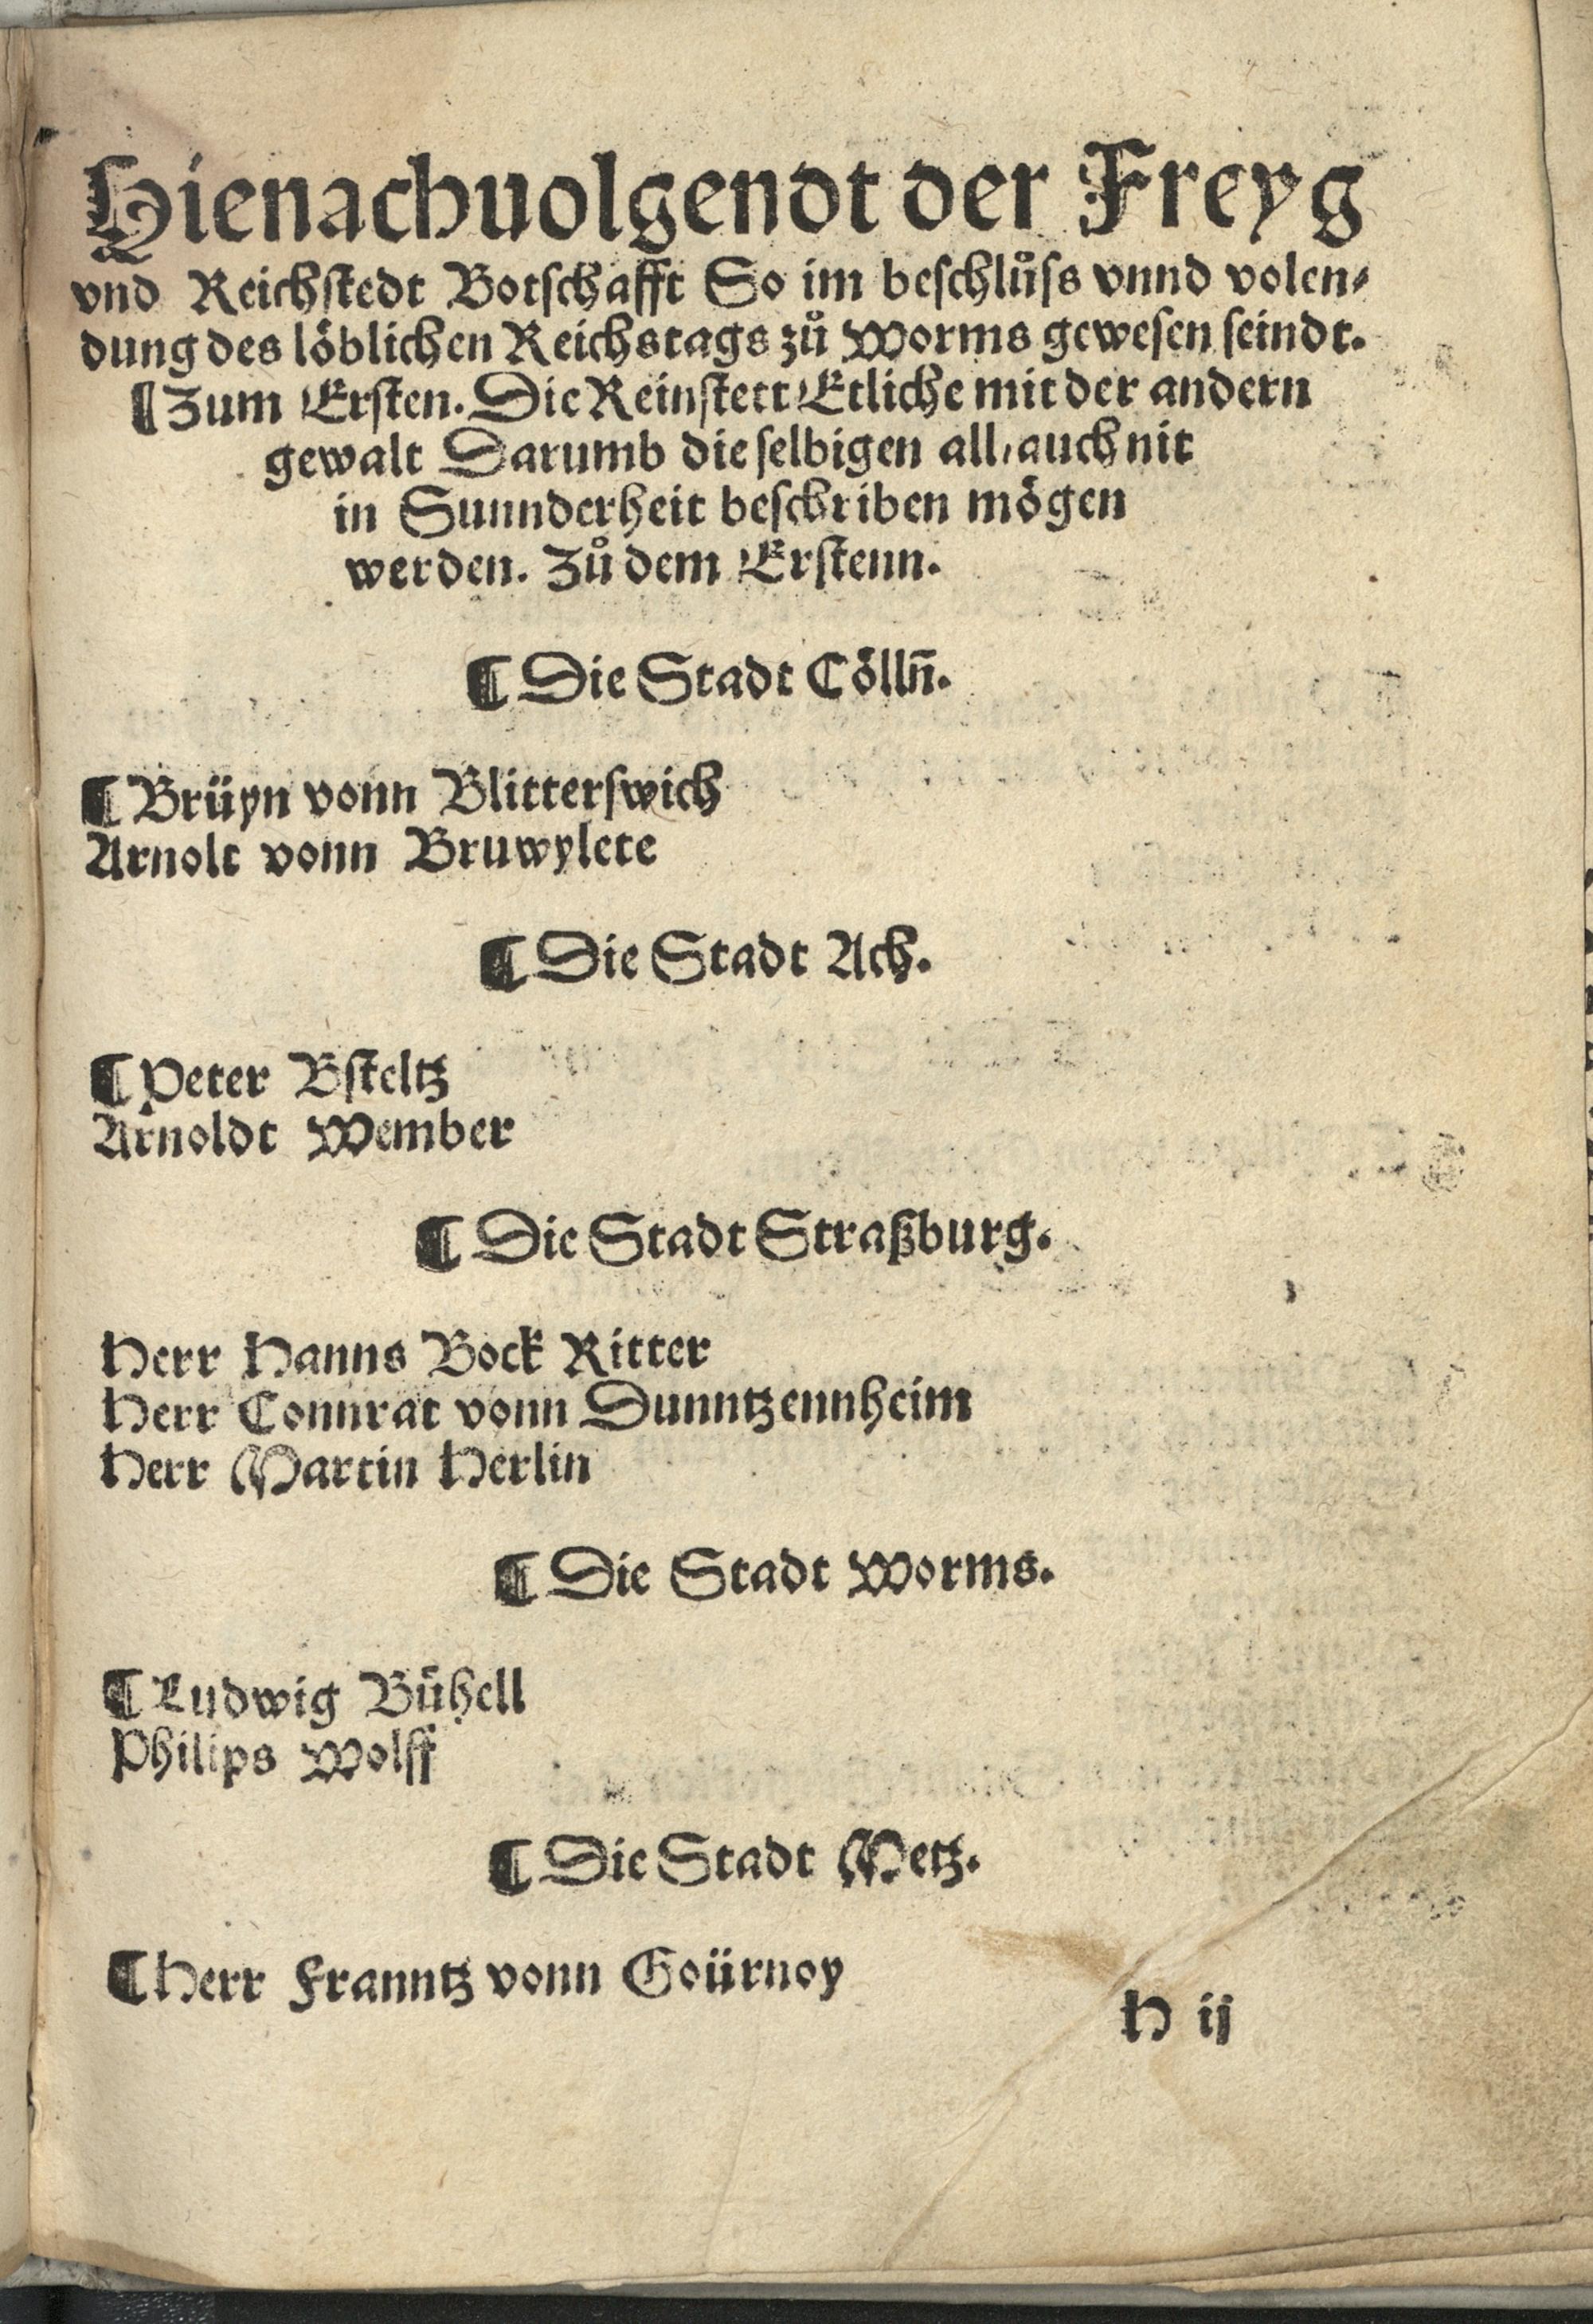 Hienachuolgendt der Freyg
vnd Reichstedt Botschafft So im beschlůss vnnd volen⸗
dung des löblichen Reichstags zů Worms gewesen seindt.
¶ Zum Ersten. Die Reinstett Etliche mit der andern
gewalt Darumb die selbigen all, auch nit
in Sunnderheit beschriben mögen
werden. Zů dem Erstenn.
¶ Die Stadt Cölln̄.
¶ Brüyn vonn Blitterswich
Arnolt vonn Bruwylete
¶ Die Stadt Ach.
¶ Peter Bsteltz
Arnoldt Wember
¶ Die Stadt Straßburg.
Herr Hanns Bock Ritter
Herr Connrat vonn Dunntzennheim
Herr Martin Herlin
¶ Die Stadt Worms.
¶ Ludwig Bühell
Philips Wolff
¶ Die Stadt Metz.
¶ Herr Franntz vonn Goürnoy
H ij